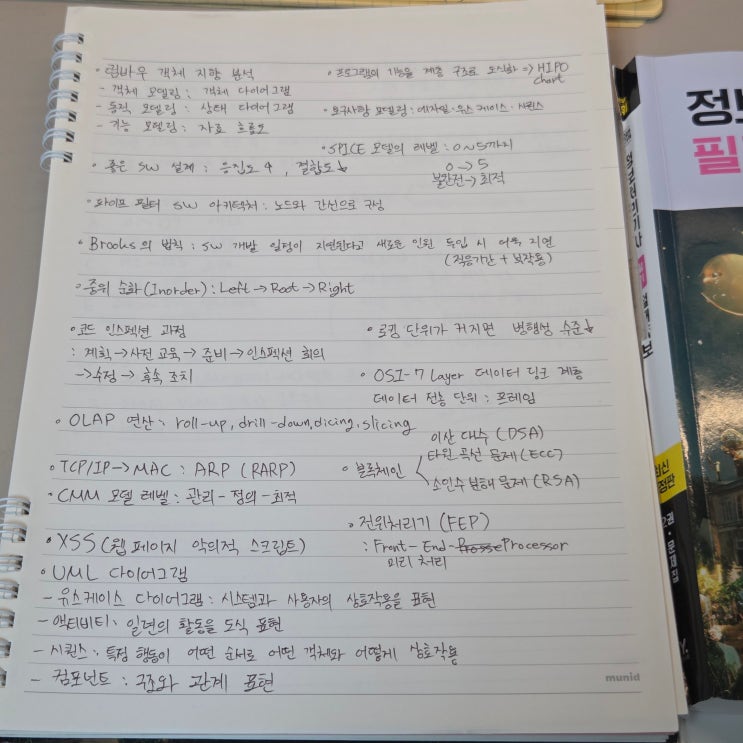 • 럼바우 객체 지향 분석
- 객체 모델링 : 객체 다이어그램
- 동적 모델링 : 상태 다이어그램
- 기능 모델링 : 자료 흐름도
• 프로그램의 기능을 계층 구조로 도식화 => HIPO
chart
• 요구사항 모델링 : 애자일 · 유스 케이스 · 시퀀스
• SPICE 모델의 레벨 : 0~5까지
0 → 5
불완전 → 최적
• 좋은 SW 설계 : 응집도↑, 결합도↓
• 파이프 필터 SW 아키텍처 : 노드와 간선으로 구성
• Brooks의 법칙 : SW 개발 일정이 지연된다고 새로운 인원 투입 시 더욱 지연
(적응기간 + 부작용)
• 중위 순회(Inorder) : Left → Root → Right
• 코드 인스펙션 과정
: 계획 → 사전 교육 → 준비 → 인스펙션 회의
→ 수정 → 후속 조치
• 로킹 단위가 커지면 병행성 수준↓
• OSI-7 Layer 데이터 링크 계층
데이터 전송 단위 : 프레임
• OLAP 연산 : roll-up, drill-down, dicing, slicing
• TCP/IP → MAC : ARP (RARP)
• CMM 모델 레벨 : 관리 - 정의 - 최적
• 블록체인
이산 대수 (DSA)
타원 곡선 문제 (ECC)
소인수 분해 문제 (RSA)
• 전위처리기 (FEP)
: Front-End-Processor
미리 처리
• XSS (웹 페이지 악의적 스크립트)
• UML 다이어그램
- 유스케이스 다이어그램 : 시스템과 사용자의 상호작용을 표현
- 액티비티 : 일련의 활동을 도식 표현
- 시퀀스 : 특정 행동이 어떤 순서로 어떤 객체와 어떻게 상호작용
- 컴포넌트 : 구조와 관계 표현
munid
정보
필